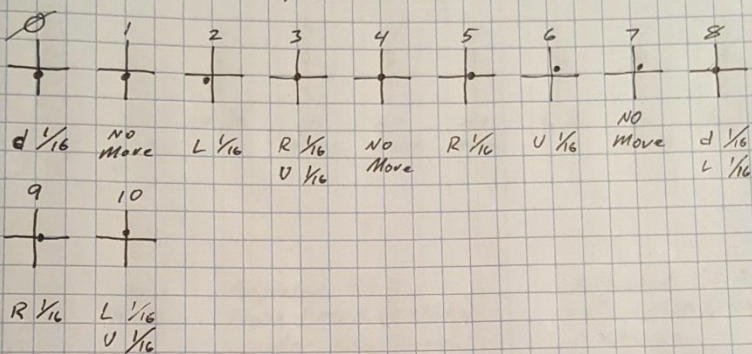 0 1 2 3 4 5 6 7 8
d 1/16 NO Move L 1/16 R 1/16 U 1/16 NO Move R 1/16 U 1/16 NO Move d 1/16 L 1/16
9 10
R 1/16 L 1/16 U 1/16